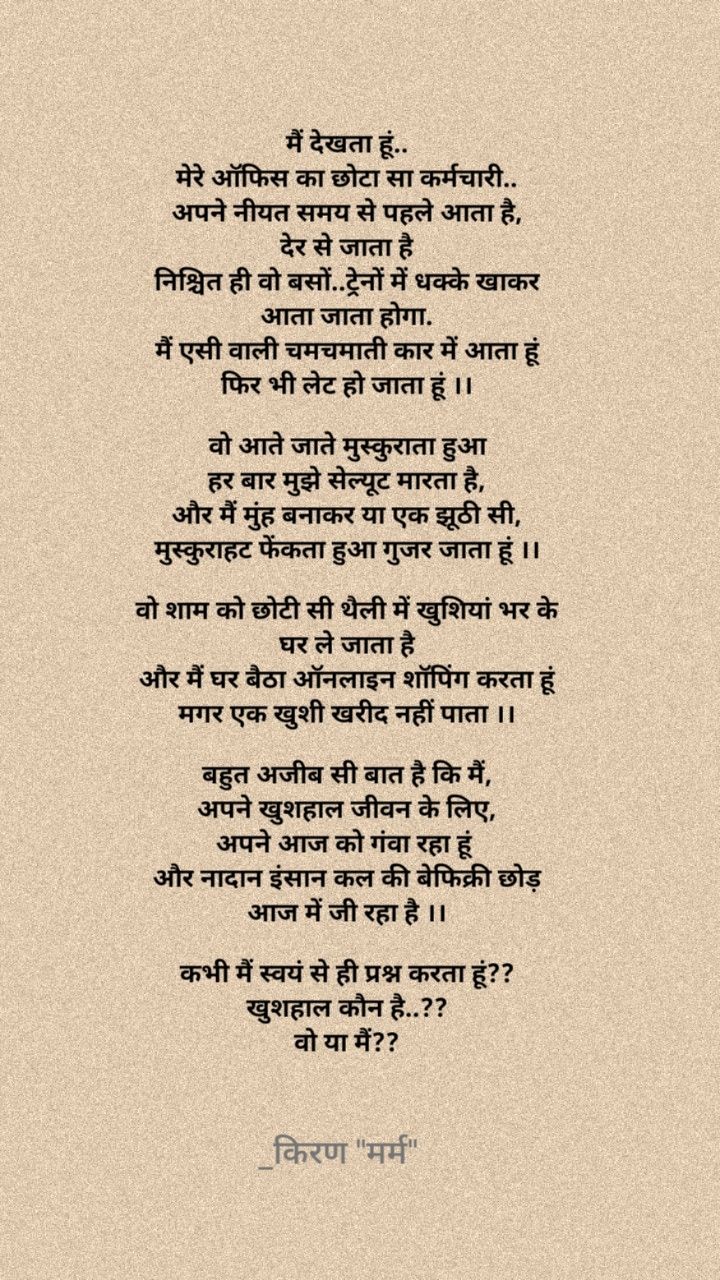 मैं देखता हूं..
मेरे ऑफिस का छोटा सा कर्मचारी..
अपने नीयत समय से पहले आता है,
देर से जाता है
निश्चित ही वो बसों..ट्रेनों में धक्के खाकर
आता जाता होगा.
मैं एसी वाली चमचमाती कार में आता हूं
फिर भी लेट हो जाता हूं ।।
वो आते जाते मुस्कुराता हुआ
हर बार मुझे सेल्यूट मारता है,
और मैं मुंह बनाकर या एक झूठी सी,
मुस्कुराहट फेंकता हुआ गुजर जाता हूं ।।
वो शाम को छोटी सी थैली में खुशियां भर के
घर ले जाता है
और मैं घर बैठा ऑनलाइन शॉपिंग करता हूं
मगर एक खुशी खरीद नहीं पाता ।।
बहुत अजीब सी बात है कि मैं,
अपने खुशहाल जीवन के लिए,
अपने आज को गंवा रहा हूं
और नादान इंसान कल की बेफिक्री छोड़
आज में जी रहा है ।।
कभी मैं स्वयं से ही प्रश्न करता हूं??
खुशहाल कौन है..??
वो या मैं??
_किरण "मर्म"